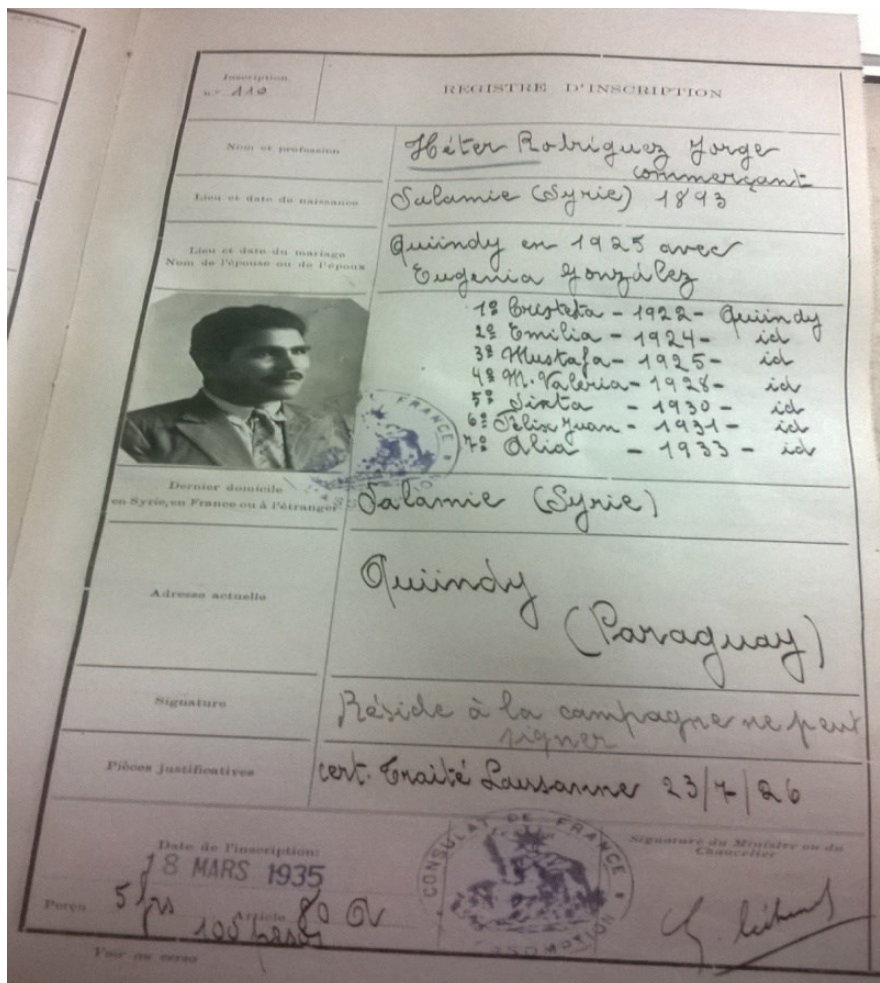 Inscription
n° 110
REGISTRE D'INSCRIPTION
Nom et profession
Héter Rodriguez Jorge
commerçant
Lieu et date de naissance
Salamie (Syrie) 1893
Lieu et date du mariage
Nom de l'épouse ou de l'époux
Quiindy en 1925 avec
Eugenia González
1º Cristeta - 1922 - Quiindy
2º Emilia - 1924 - id
3º Mustafa - 1925 - id
4º M. Valeria - 1928 - id
5º Sixta - 1930 - id
6º Felix Juan - 1931 - id
7º Alia - 1933 - id
DE FRANCE
Dernier domicile
en Syrie, en France ou à l'étranger
Salamie (Syrie)
Adresse actuelle
Quiindy
(Paraguay)
Signature
Réside à la campagne ne peut
signer
Pièces justificatives
cert. Traité Lausanne 23/7/26
Date de l'inscription:
18 MARS 1935
Perçu 5 frs Article 80
105 pesos
CONSULAT DE FRANCE
ASSOMPTION
Signature du Ministre ou du
Chancelier
Voir au verso